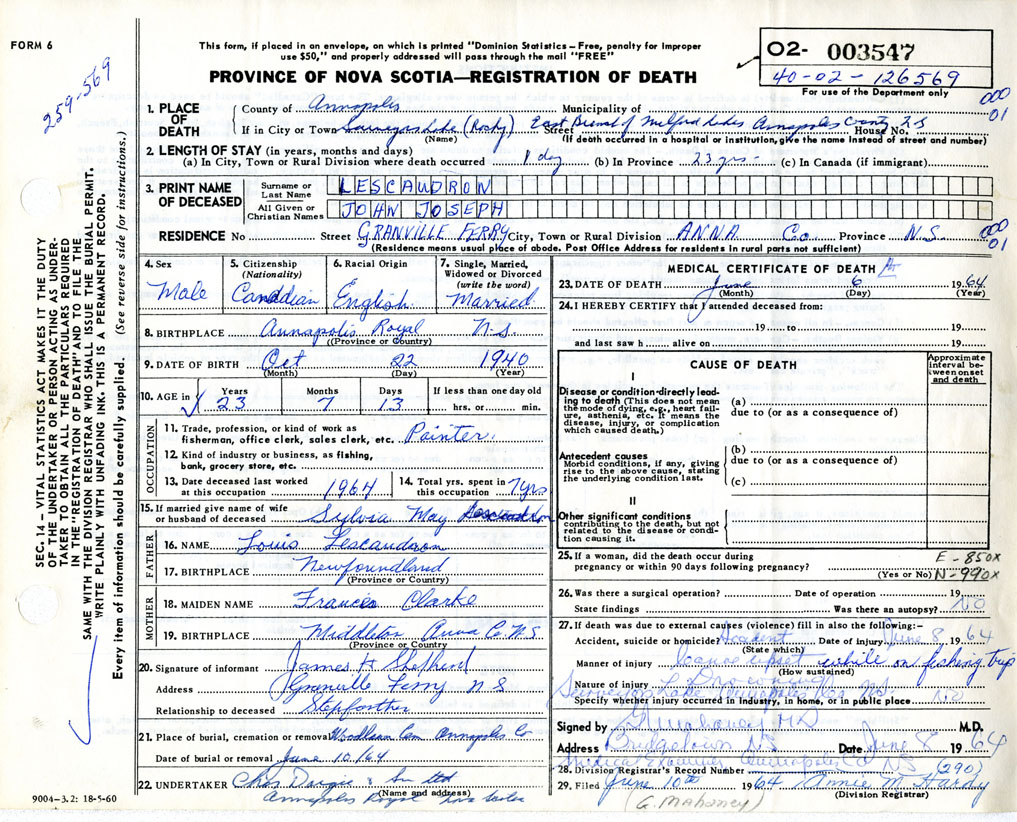 FORM 6
This form, if placed in an envelope, on which is printed "Dominion Statistics – Free, penalty for improper
use $50," and properly addressed will pass through the mail "FREE"
PROVINCE OF NOVA SCOTIA—REGISTRATION OF DEATH
02- 003547
40-02-126569
For use of the Department only
000
01
259-569
SEC. 14 – VITAL STATISTICS ACT MAKES IT THE DUTY
OF THE UNDERTAKER OR PERSON ACTING AS UNDER-
TAKER TO OBTAIN ALL THE PARTICULARS REQUIRED
IN THE "REGISTRATION OF DEATH" AND TO FILE THE
SAME WITH THE DIVISION REGISTRAR WHO SHALL ISSUE THE BURIAL PERMIT.
WRITE PLAINLY WITH UNFADING INK. THIS IS A PERMANENT RECORD.
Every item of information should be carefully supplied. (See reverse side for instructions.)
1. PLACE OF DEATH
County of Annapolis Municipality of
If in City or Town Lake (Rocky) East Milford Lakes Annapolis County Street House No.
(Name) (If death occurred in a hospital or institution, give the name instead of street and number)
2. LENGTH OF STAY (in years, months and days)
(a) In City, Town or Rural Division where death occurred 1 day (b) In Province 23 yrs. (c) In Canada (if immigrant)
3. PRINT NAME OF DECEASED
Surname or Last Name LESCAUDRON
All Given or Christian Names JOHN JOSEPH
RESIDENCE No Street GRANVILLE FERRY City, Town or Rural Division ANNA Co. Province N.S.
000
01
(Residence means usual place of abode. Post Office Address for residents in rural parts not sufficient)
4. Sex Male
5. Citizenship (Nationality) Canadian
6. Racial Origin English
7. Single, Married, Widowed or Divorced (write the word) Married
8. BIRTHPLACE Annapolis Royal N.S.
(Province or Country)
9. DATE OF BIRTH Oct 22 1940
(Month) (Day) (Year)
10. AGE in Years 23 Months 7 Days 13 If less than one day old hrs. or min.
OCCUPATION
11. Trade, profession, or kind of work as
fisherman, office clerk, sales clerk, etc. Painter
12. Kind of industry or business, as fishing,
bank, grocery store, etc.
13. Date deceased last worked at this occupation 1964
14. Total yrs. spent in this occupation 7 yrs
15. If married give name of wife
or husband of deceased Sylvia May Lescaudron
FATHER
16. NAME Louis Lescaudron
17. BIRTHPLACE Newfoundland
(Province or Country)
MOTHER
18. MAIDEN NAME Frances Clarke
19. BIRTHPLACE Middleton Anna Co. N.S
(Province or Country)
20. Signature of informant James H Shepherd
Address Granville Ferry N S
Relationship to deceased Stepfather
21. Place of burial, cremation or removal Woodlawn Cem Annapolis Co
Date of burial or removal June 10/64
22. UNDERTAKER Chas Dargie & Son Ltd
(Name and address)
Annapolis Royal Nova Scotia
9004–3.2: 18-5-60
MEDICAL CERTIFICATE OF DEATH
23. DATE OF DEATH June 6 1964
(Month) (Day) (Year)
24. I HEREBY CERTIFY that I attended deceased from:
19 to 19
and last saw h alive on 19
CAUSE OF DEATH
Approximate interval between onset and death
I
Disease or condition directly leading to death (This does not mean the mode of dying, e.g., heart failure, asthenia, etc. It means the disease, injury, or complication which caused death.)
(a)
due to (or as a consequence of)
Antecedent causes
Morbid conditions, if any, giving rise to the above cause, stating the underlying condition last.
(b)
due to (or as a consequence of)
(c)
II
Other significant conditions
contributing to the death, but not related to the disease or condition causing it.
25. If a woman, did the death occur during
pregnancy or within 90 days following pregnancy?
(Yes or No)
E – 850X
N – 990X
26. Was there a surgical operation? Date of operation 19
State findings Was there an autopsy? NO
27. If death was due to external causes (violence) fill in also the following:–
Accident, suicide or homicide? Accident Date of injury June 8 1964
(State which)
Manner of injury Canoe upset while on fishing trip
(How sustained)
Nature of injury Drowning
Surveyors Lake Annapolis Co. N.S.
Specify whether injury occurred in industry, in home, or in public place NO
Signed by G Mahoney MD M.D.
Address Bridgetown NS Date June 8 1964
Medical Examiner Annapolis Co NS
28. Division Registrar's Record Number (290)
29. Filed June 10th 1964 Annie M. Hardy
(Division Registrar)
(G. Mahoney)